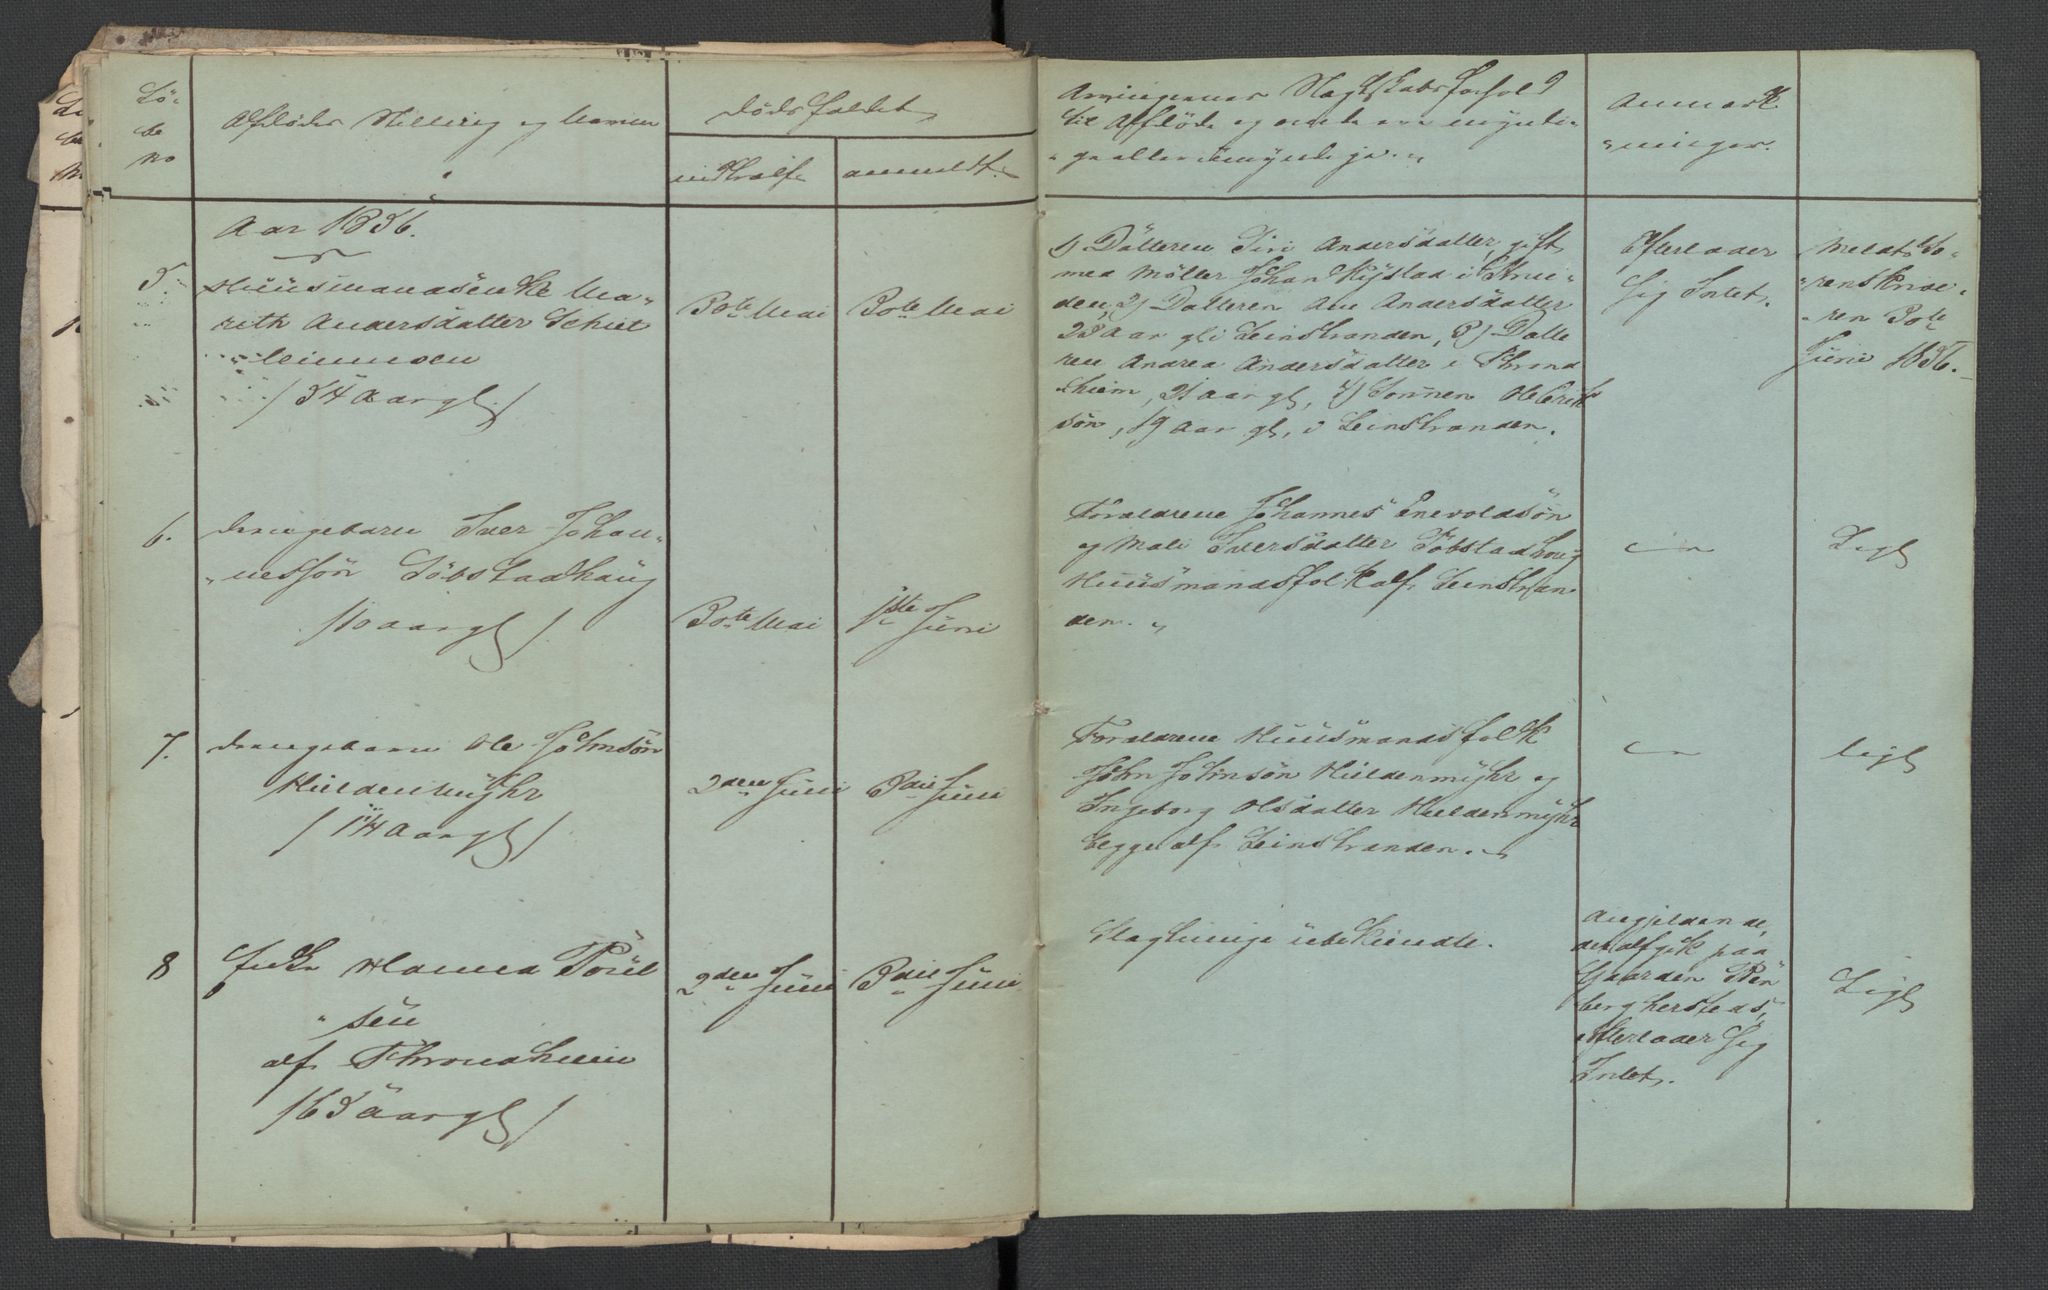 Lö-
be
no
Afdödes Stilling og Navn
Dödsfaldet
indtraf
anmeldt.
Arvingernes Slægtskabsforhold
til Afdöde og om de ere myndi-
ge eller umyndige.
Anmærk-
ninger.
Aar 1856.
5
Huusmandsenke Ma-
rith Andersdatter
/54 Aar gl./
30te Mai
30te Mai
1) Datteren Siri Andersdatter, gift
med Möller Johan Rÿstad i Strin-
den, 2) Datteren Ane Andersdatter
28 Aar gl i Leinstranden, 3) Datte
ren Andrea Andersdatter i Thrond
hiem, 21 aar gl, 4) Sönnen Ole Erik
sön, 19 Aar gl, i Leinstranden.
Efterlader
sig Intet.
Meldt So-
renskrive-
ren 30te
Juni 1856.
6.
Drengebarn Iver Johan-
nessön Söbstadhaug
/10 aar gl/
30te Mai
1ste Juni
Foraldrene Johannes Enevoldsön
og Mali Iversdatter Söbstadhaug
Huusmandsfolk af Leinstran
den.
Ligt
7.
Drengebarn Ole Johnsön
Huldenmÿhr
/1 1/4 Aar gl/
2den Juni
3die Juni
Foraldrene Huusmandsfolk
John Johnsön Huldenmÿhr og
Ingeborg Olsdatter Huldenmÿhr
Egge af Leinstranden.
ligt
8
Enke Hanna Poul
sen
af Throndhiem
/65 Aar gl/
2den Juni
3die Juni
Slægtninge ubekiendte.
Angjeldende,
der afgik paa
Gaarden Rön
berg hersteds,
efterlader sig
Intet.
Ligt